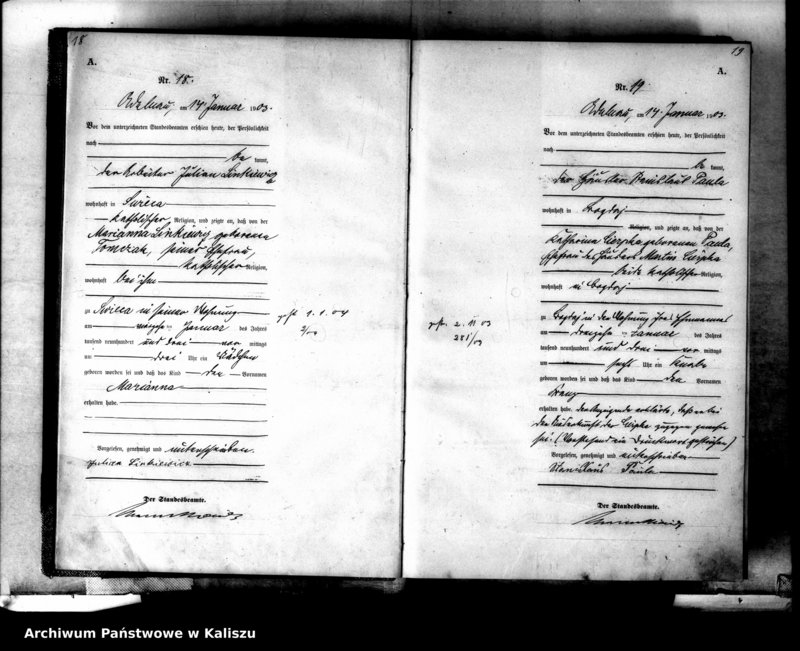 18
A.
Nr. 18.
Adelnau, am 14. Januar 1903.
Vor dem unterzeichneten Standesbeamten erschien heute, der Persönlichkeit
nach
be kannt,
der Arbeiter Julian Linkiewicz
wohnhaft in
katholischer Religion, und zeigte an, daß von der
Marianna Linkiewicz geborenen
Tomczak, seiner Ehefrau,
katholischer Religion,
wohnhaft bei ihm
zu in seiner Wohnung
am Januar des Jahres
tausend neunhundert und drei vor mittags
um drei Uhr ein Mädchen
geboren worden sei und daß das Kind den Vornamen
Marianna
erhalten habe.
Vorgelesen, genehmigt und unterschrieben.
Julian Linkiewicz
Der Standesbeamte.
gst. 9. 1. 04
19
A.
Nr. 19.
Adelnau, am 14. Januar 1903.
Vor dem unterzeichneten Standesbeamten erschien heute, der Persönlichkeit
nach
be kannt,
der Häusler Paula
wohnhaft in Bogdaj
Religion, und zeigte an, daß von der
Katharina Cierpka geborenen Paula,
Ehefrau des Martin Cierpka
beide katholischer Religion,
wohnhaft in Bogdaj
zu Bogdaj in der Wohnung ihres Ehemannes
am Januar des Jahres
tausend neunhundert und drei vor mittags
um sechs Uhr ein Knabe
geboren worden sei und daß das Kind den Vornamen
Franz
erhalten habe. Der Anzeigende erklärte, daß er bei
der Niederkunft der Cierpka zugegen gewesen
sei. (Vorstehend ein Druckwort gestrichen)
Vorgelesen, genehmigt und unterschrieben
Paula
Der Standesbeamte.
gst. 2. 11. 03
Archiwum Państwowe w Kaliszu